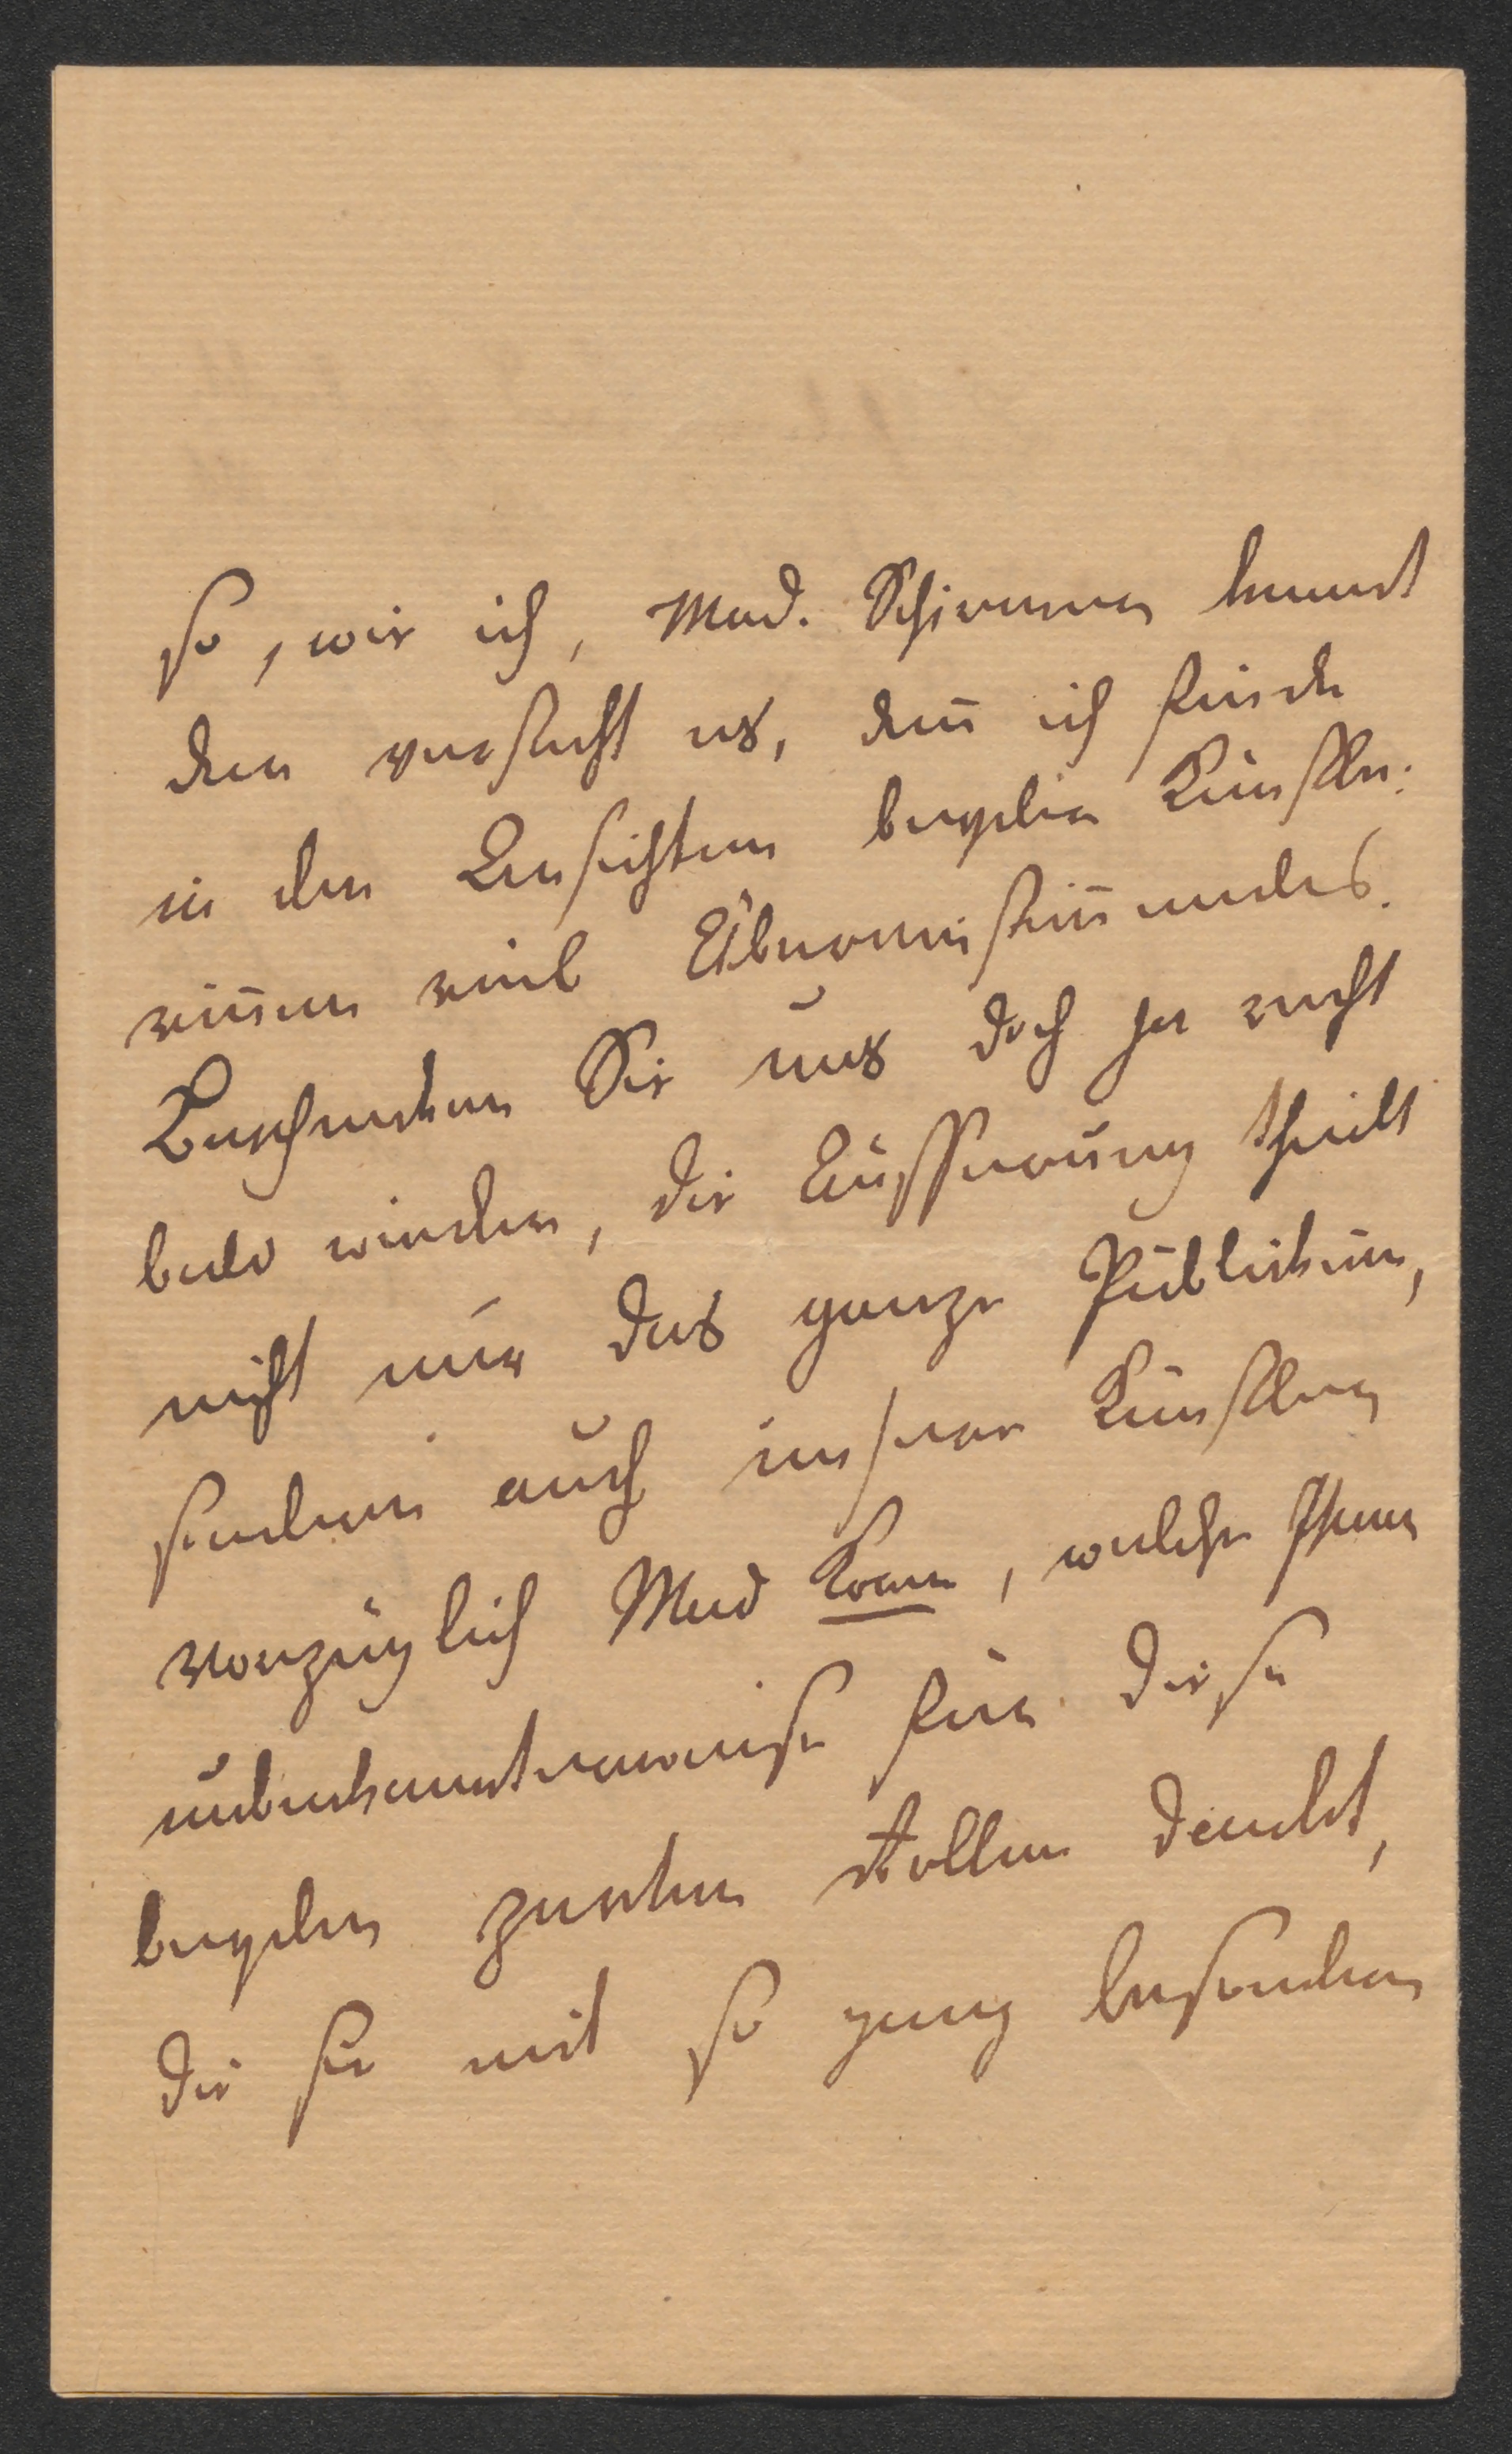 so, wie ich, Mad. Schirmer kennt
der versteht es, denn ich finde
in den Ansichten beyder Künstle-
rinnen viel Übereinstimmendes.
Beschenken Sie uns doch ja recht
bald wieder, die Äusserung theilt
nicht nur das ganze Publickum,
sondern auch unsere Künstler
vorzüglich Mad Kram, welche Ihnen
unbekannterweise für diese
beyden zarten Rollen danckt,
die sie mit so ganz besondrer